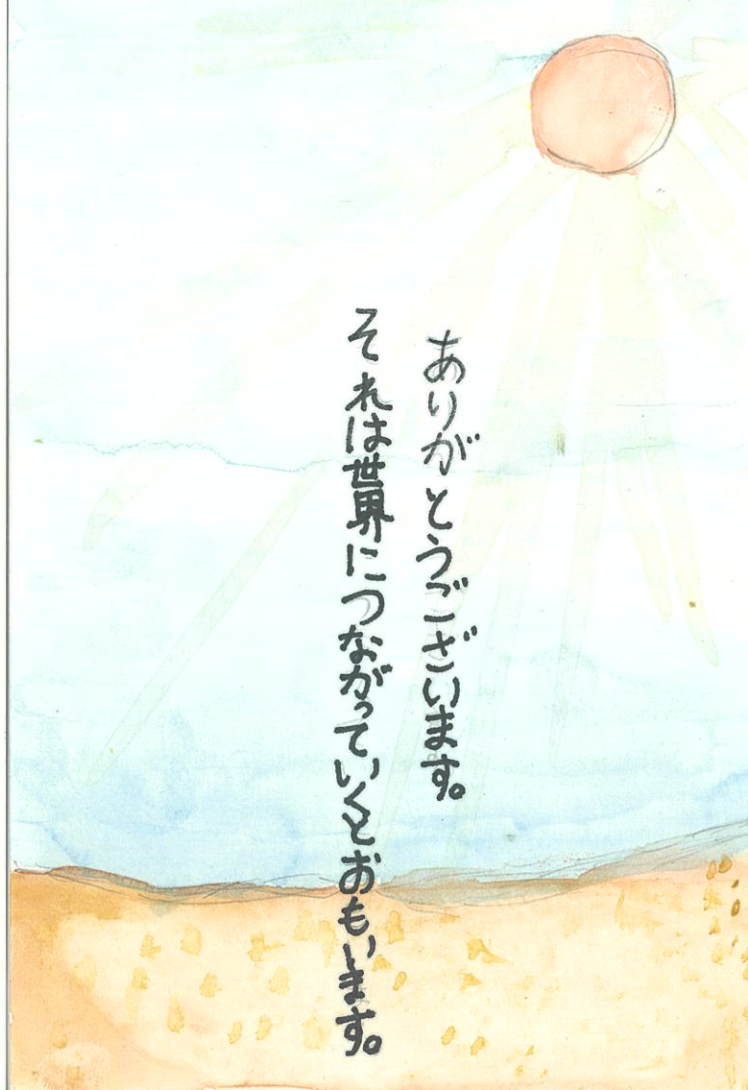 ありがとうございます。
それは世界につながっていくとおもいます。